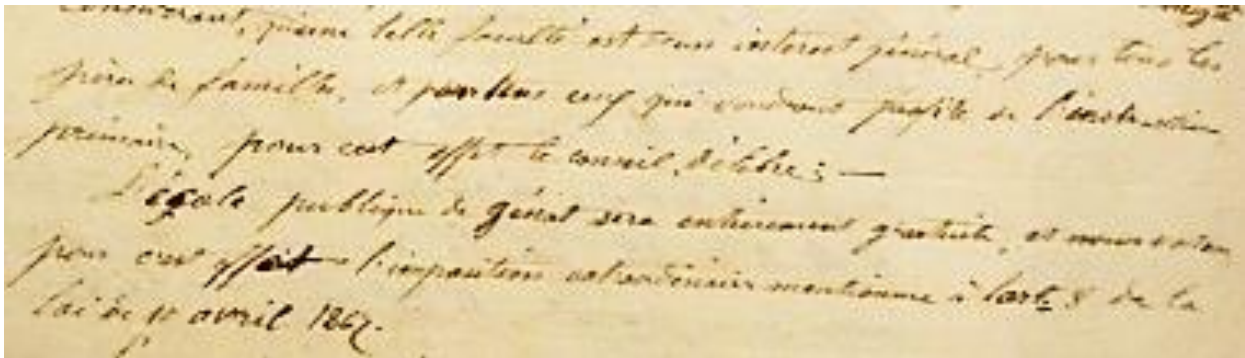 considerant, qu'une telle faculté est d'un interest général, pour tous les
père de famille, et pour tous ceux qui voudront profité de l'instruction
primaire, pour cest effet le conseil, délibre : —
L'école publique de génat sera entièrement gratuite, et nous voton
pour cest effait l'imposition extraordinaire mentionné à l'art. 8 de la
loi de 10 avril 1867.